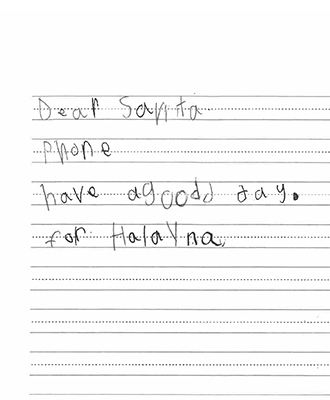 Dear Sanita
phone
have agoodd day.
for Halayna